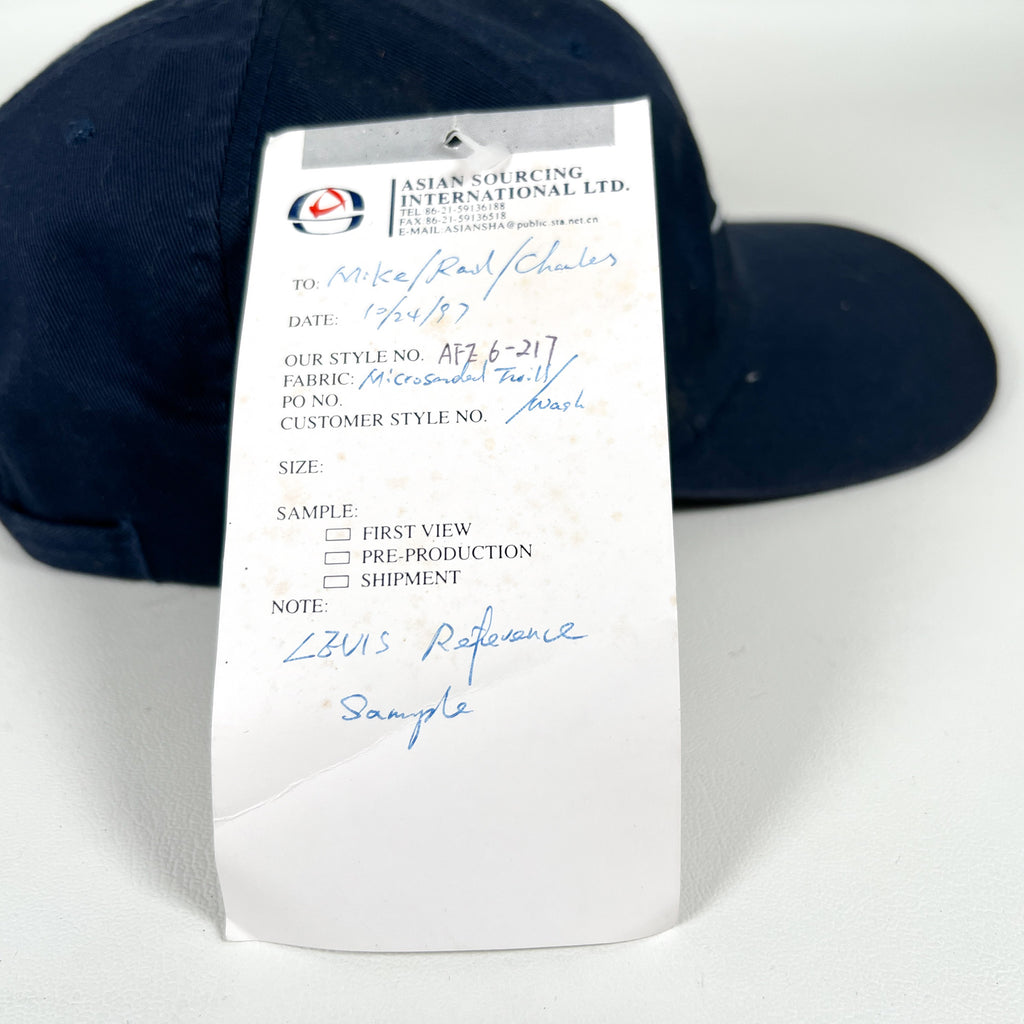 ASIAN SOURCING
INTERNATIONAL LTD.
TEL 86-21-59136188
FAX 86-21-59136518
E-MAIL:ASIANSHA@public.sta.net.cn
TO: Mike/Raul/Charles
DATE: 10/24/97
OUR STYLE NO. AFZ 6-217
FABRIC: Microsanded Twill/
PO NO.
CUSTOMER STYLE NO. /Wash
SIZE:
SAMPLE:
FIRST VIEW
PRE-PRODUCTION
SHIPMENT
NOTE:
LEVIS Reference
Sample